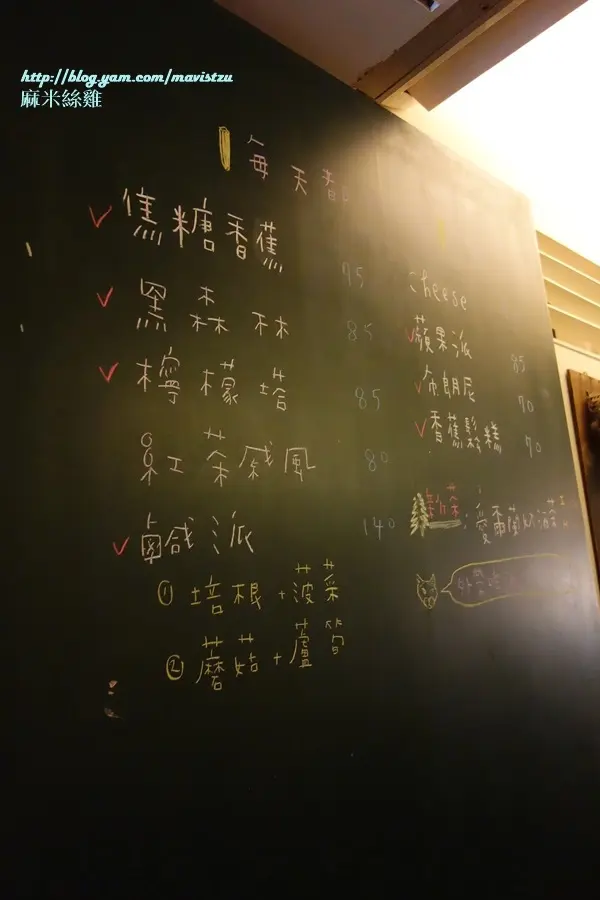 http://blog.yam.com/mavistzu
麻米絲雞
每天都
焦糖香蕉 95
黑森林 85
檸檬塔 85
紅茶戚風 80
鹹派 140
① 培根+菠菜
② 蘑菇+蘆筍
cheese
蘋果派 85
布朗尼 70
香蕉鬆糕 70
新菜:愛爾蘭